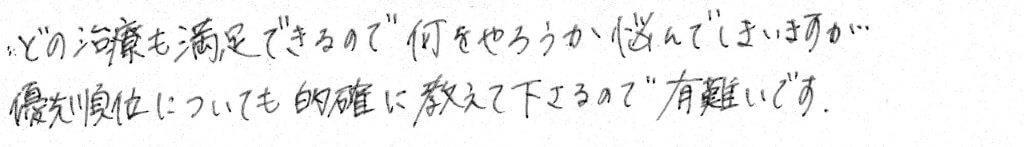 :どの治療も満足できるので何をやろうか悩んでしまいますが…
優先順位についても的確に教えて下さるので有難いです.